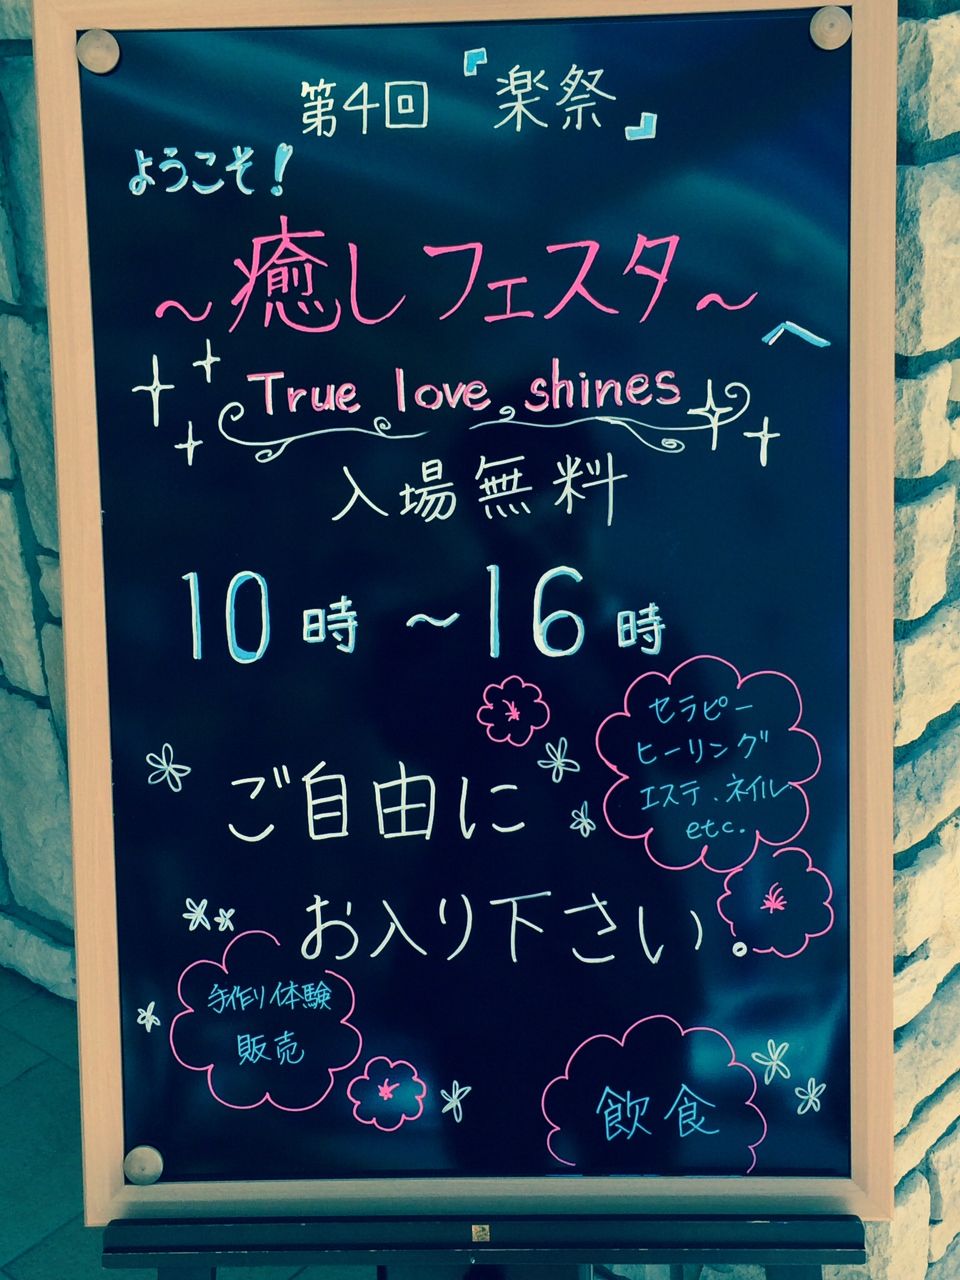 第4回『楽祭』
ようこそ!
～癒しフェスタ～へ
True love shines
入場無料
10時～16時
セラピー
ヒーリング
エステ、ネイル
etc.
ご自由に
お入り下さい。
手作り体験
販売
飲食